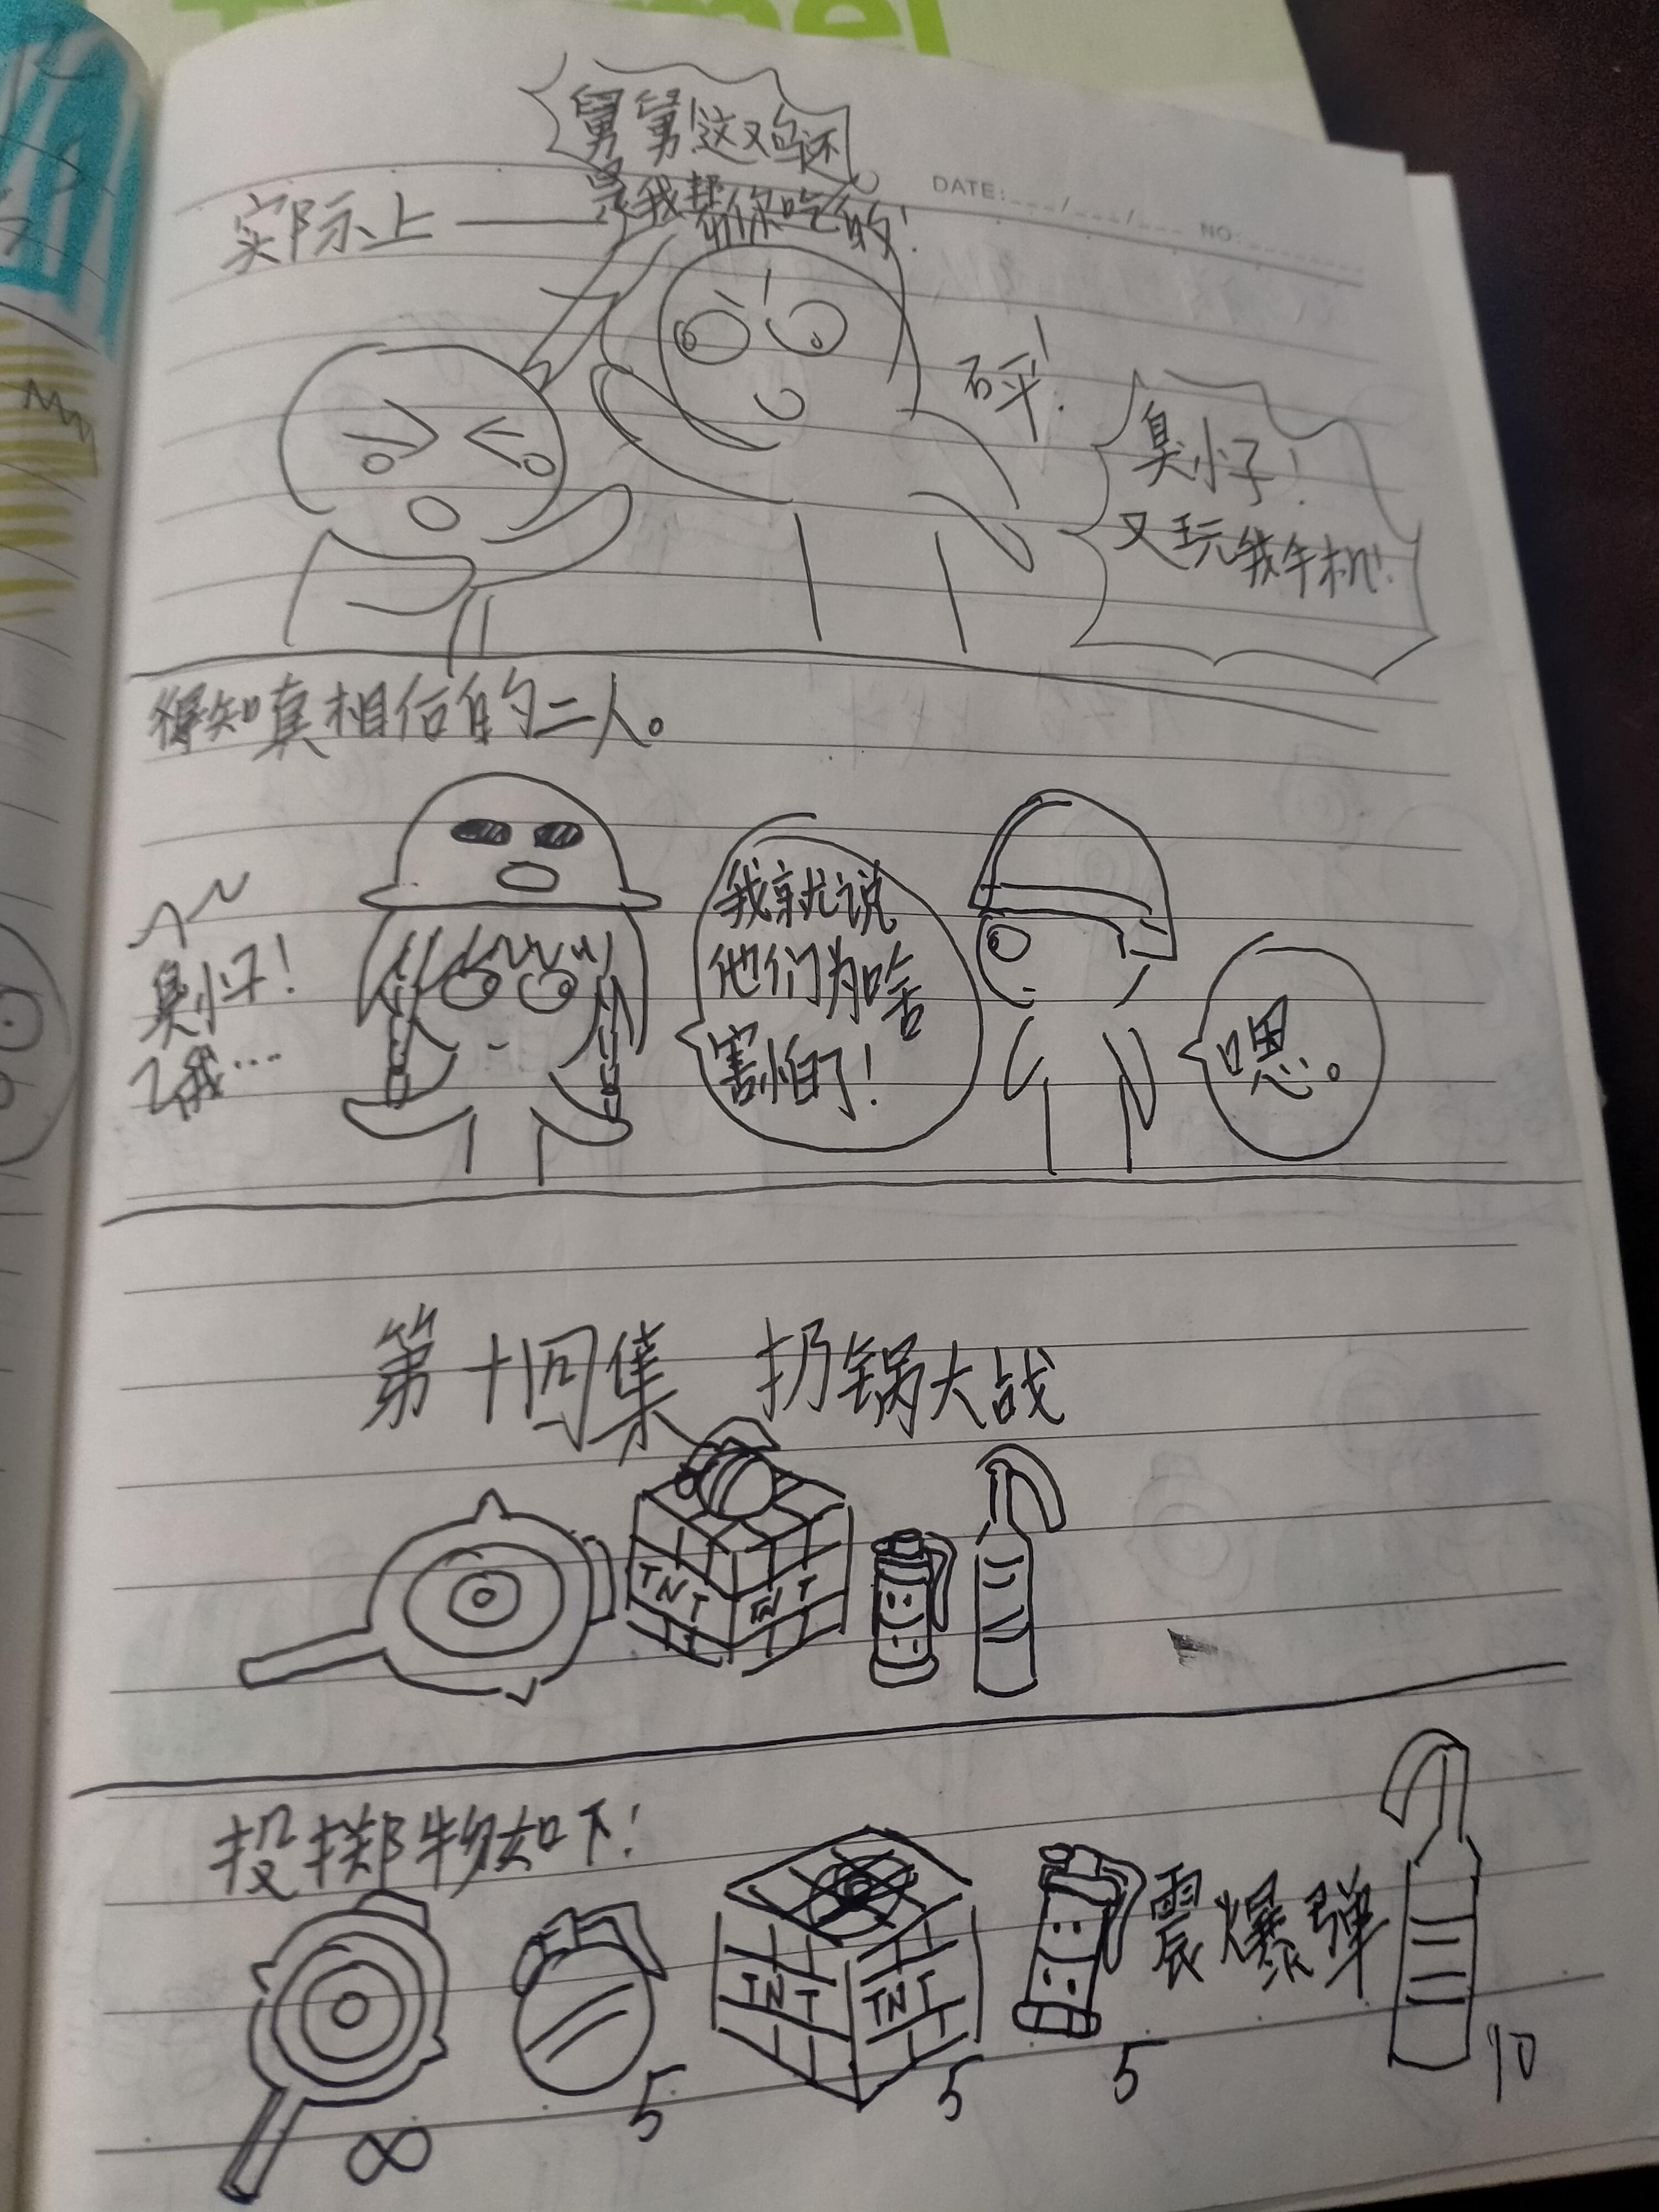 舅舅!这又鸡还
是我帮你吃的!
DATE: / / NO:
实际上——
砰!
臭小子!
又玩我手机!
得知真相后的二人。
臭小子!
我...
我就说
他们为啥
害怕了!
嗯。
第十四集 扔锅大战
TNT TNT
投掷物如下!
TNT TNT
震爆弹
∞ 5 5 5 10